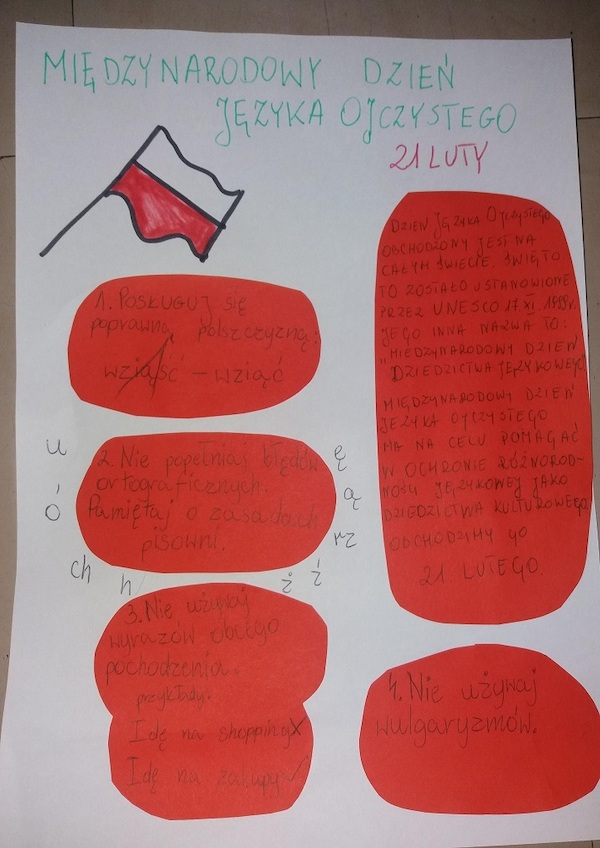 MIĘDZYNARODOWY DZIEŃ
JĘZYKA OJCZYSTEGO
21 LUTY
1. Posługuj się
poprawną polszczyzną:
wziąść – wziąć
u
ó
2. Nie popełniaj błędów
ortograficznych.
Pamiętaj o zasadach
pisowni.
ę
ą
rz
ch h ż ź
3. Nie używaj
wyrazów obcego
pochodzenia.
przykłady.
Idę na shopping X
Idę na zakupy ✓
DZIEŃ JĘZYKA OJCZYSTEGO
OBCHODZONY JEST NA
CAŁYM ŚWIECIE. ŚWIĘTO
TO ZOSTAŁO USTANOWIONE
PRZEZ UNESCO 17 XI. 1999r.
JEGO INNA NAZWA TO:
"MIĘDZYNARODOWY DZIEŃ
DZIEDZICTWA JĘZYKOWEGO"
MIĘDZYNARODOWY DZIEŃ
JĘZYKA OJCZYSTEGO
MA NA CELU POMAGAĆ
W OCHRONIE RÓŻNOROD-
NOŚCI JĘZYKOWEJ JAKO
DZIEDZICTWA KULTUROWEGO
OBCHODZIMY GO
21. LUTEGO.
4. Nie używaj
wulgaryzmów.